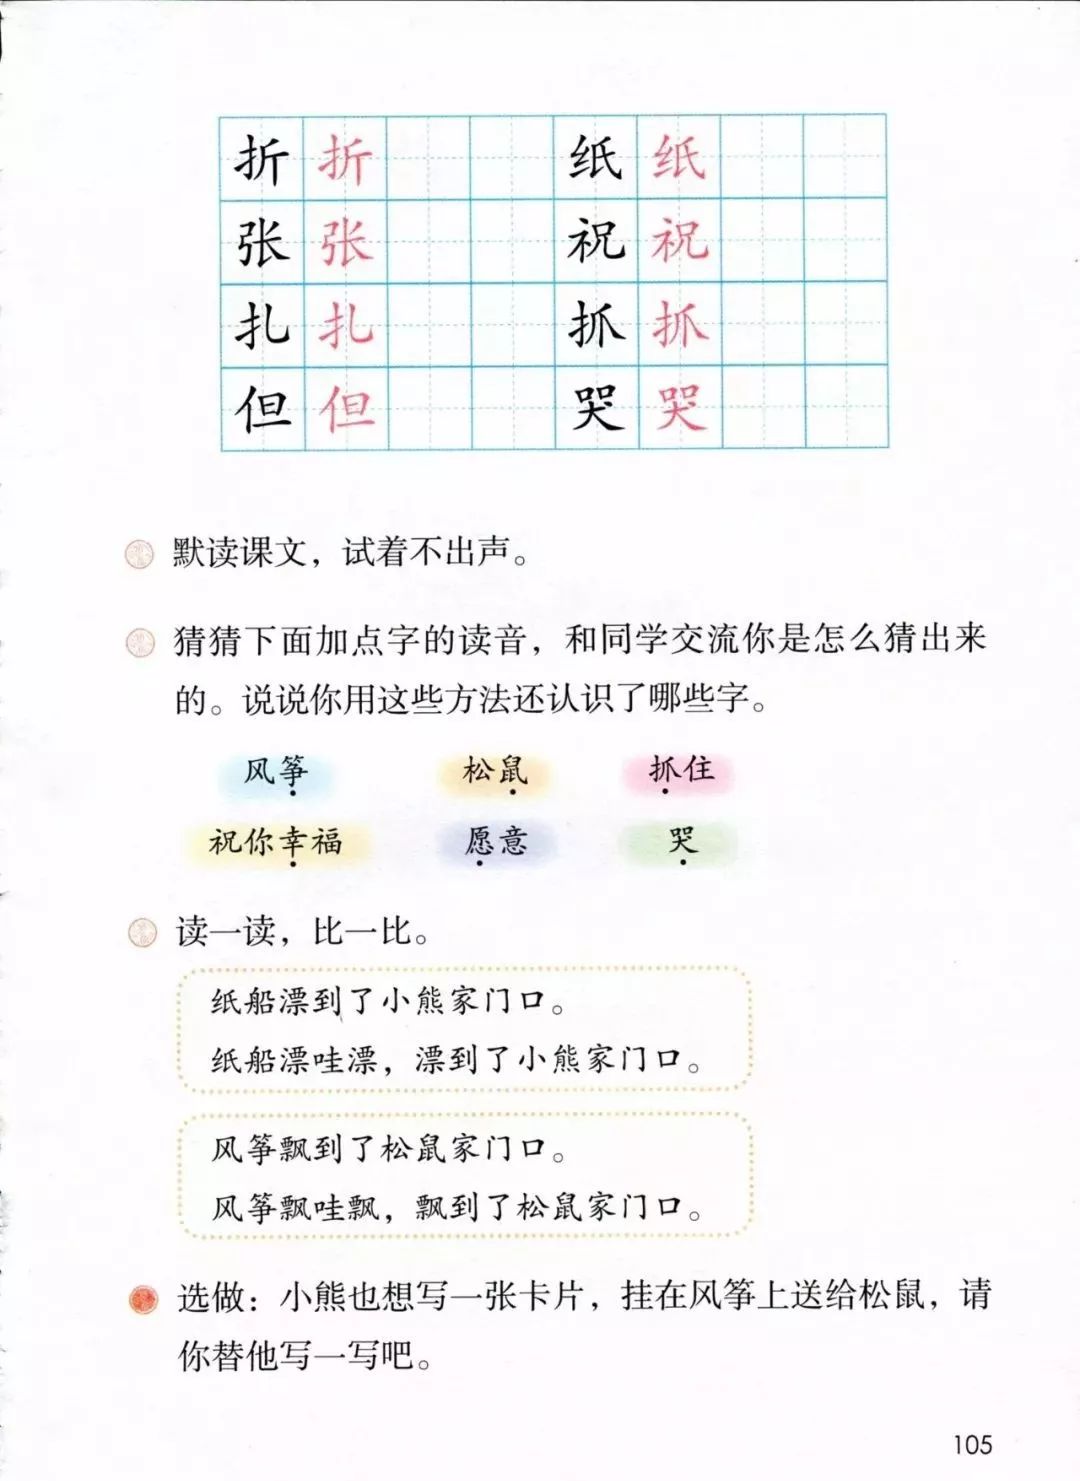 折 折 纸 纸
张 张 祝 祝
扎 扎 抓 抓
但 但 哭 哭
默读课文，试着不出声。
猜猜下面加点字的读音，和同学交流你是怎么猜出来
的。说说你用这些方法还认识了哪些字。
风筝 松鼠 抓住
祝你幸福 愿意 哭
读一读，比一比。
纸船漂到了小熊家门口。
纸船漂哇漂，漂到了小熊家门口。
风筝飘到了松鼠家门口。
风筝飘哇飘，飘到了松鼠家门口。
选做：小熊也想写一张卡片，挂在风筝上送给松鼠，请
你替他写一写吧。
105